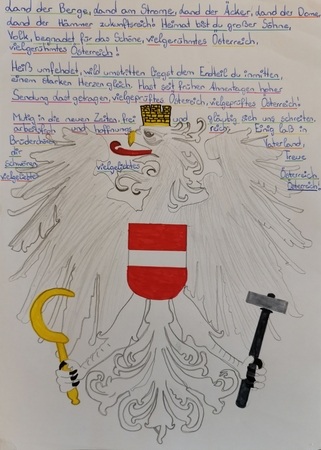 Land der Berge, Land am Strome, Land der Äcker, Land der Dome
Land der Hämmer zukunftsreich! Heimat bist du großer Söhne,
Volk, begnadet für das Schöne, vielgerühmtes Österreich,
vielgerühmtes Österreich!
Heiß umfehdet, wild umstritten liegst dem Erdteil du inmitten,
einem starken Herzen gleich. Hast seit frühen Ahnentagen hoher
Sendung Last getragen, vielgeprüftes Österreich, vielgeprüftes Österreich!
Mutig in die neuen Zeiten, frei und gläubig sieh uns schreiten,
arbeitsfroh und hoffnungs reich. Einig laß in
Brüderchören Vaterland,
dir Treue
schwören vielgeliebtes Österreich
vielgeliebtes Österreich!